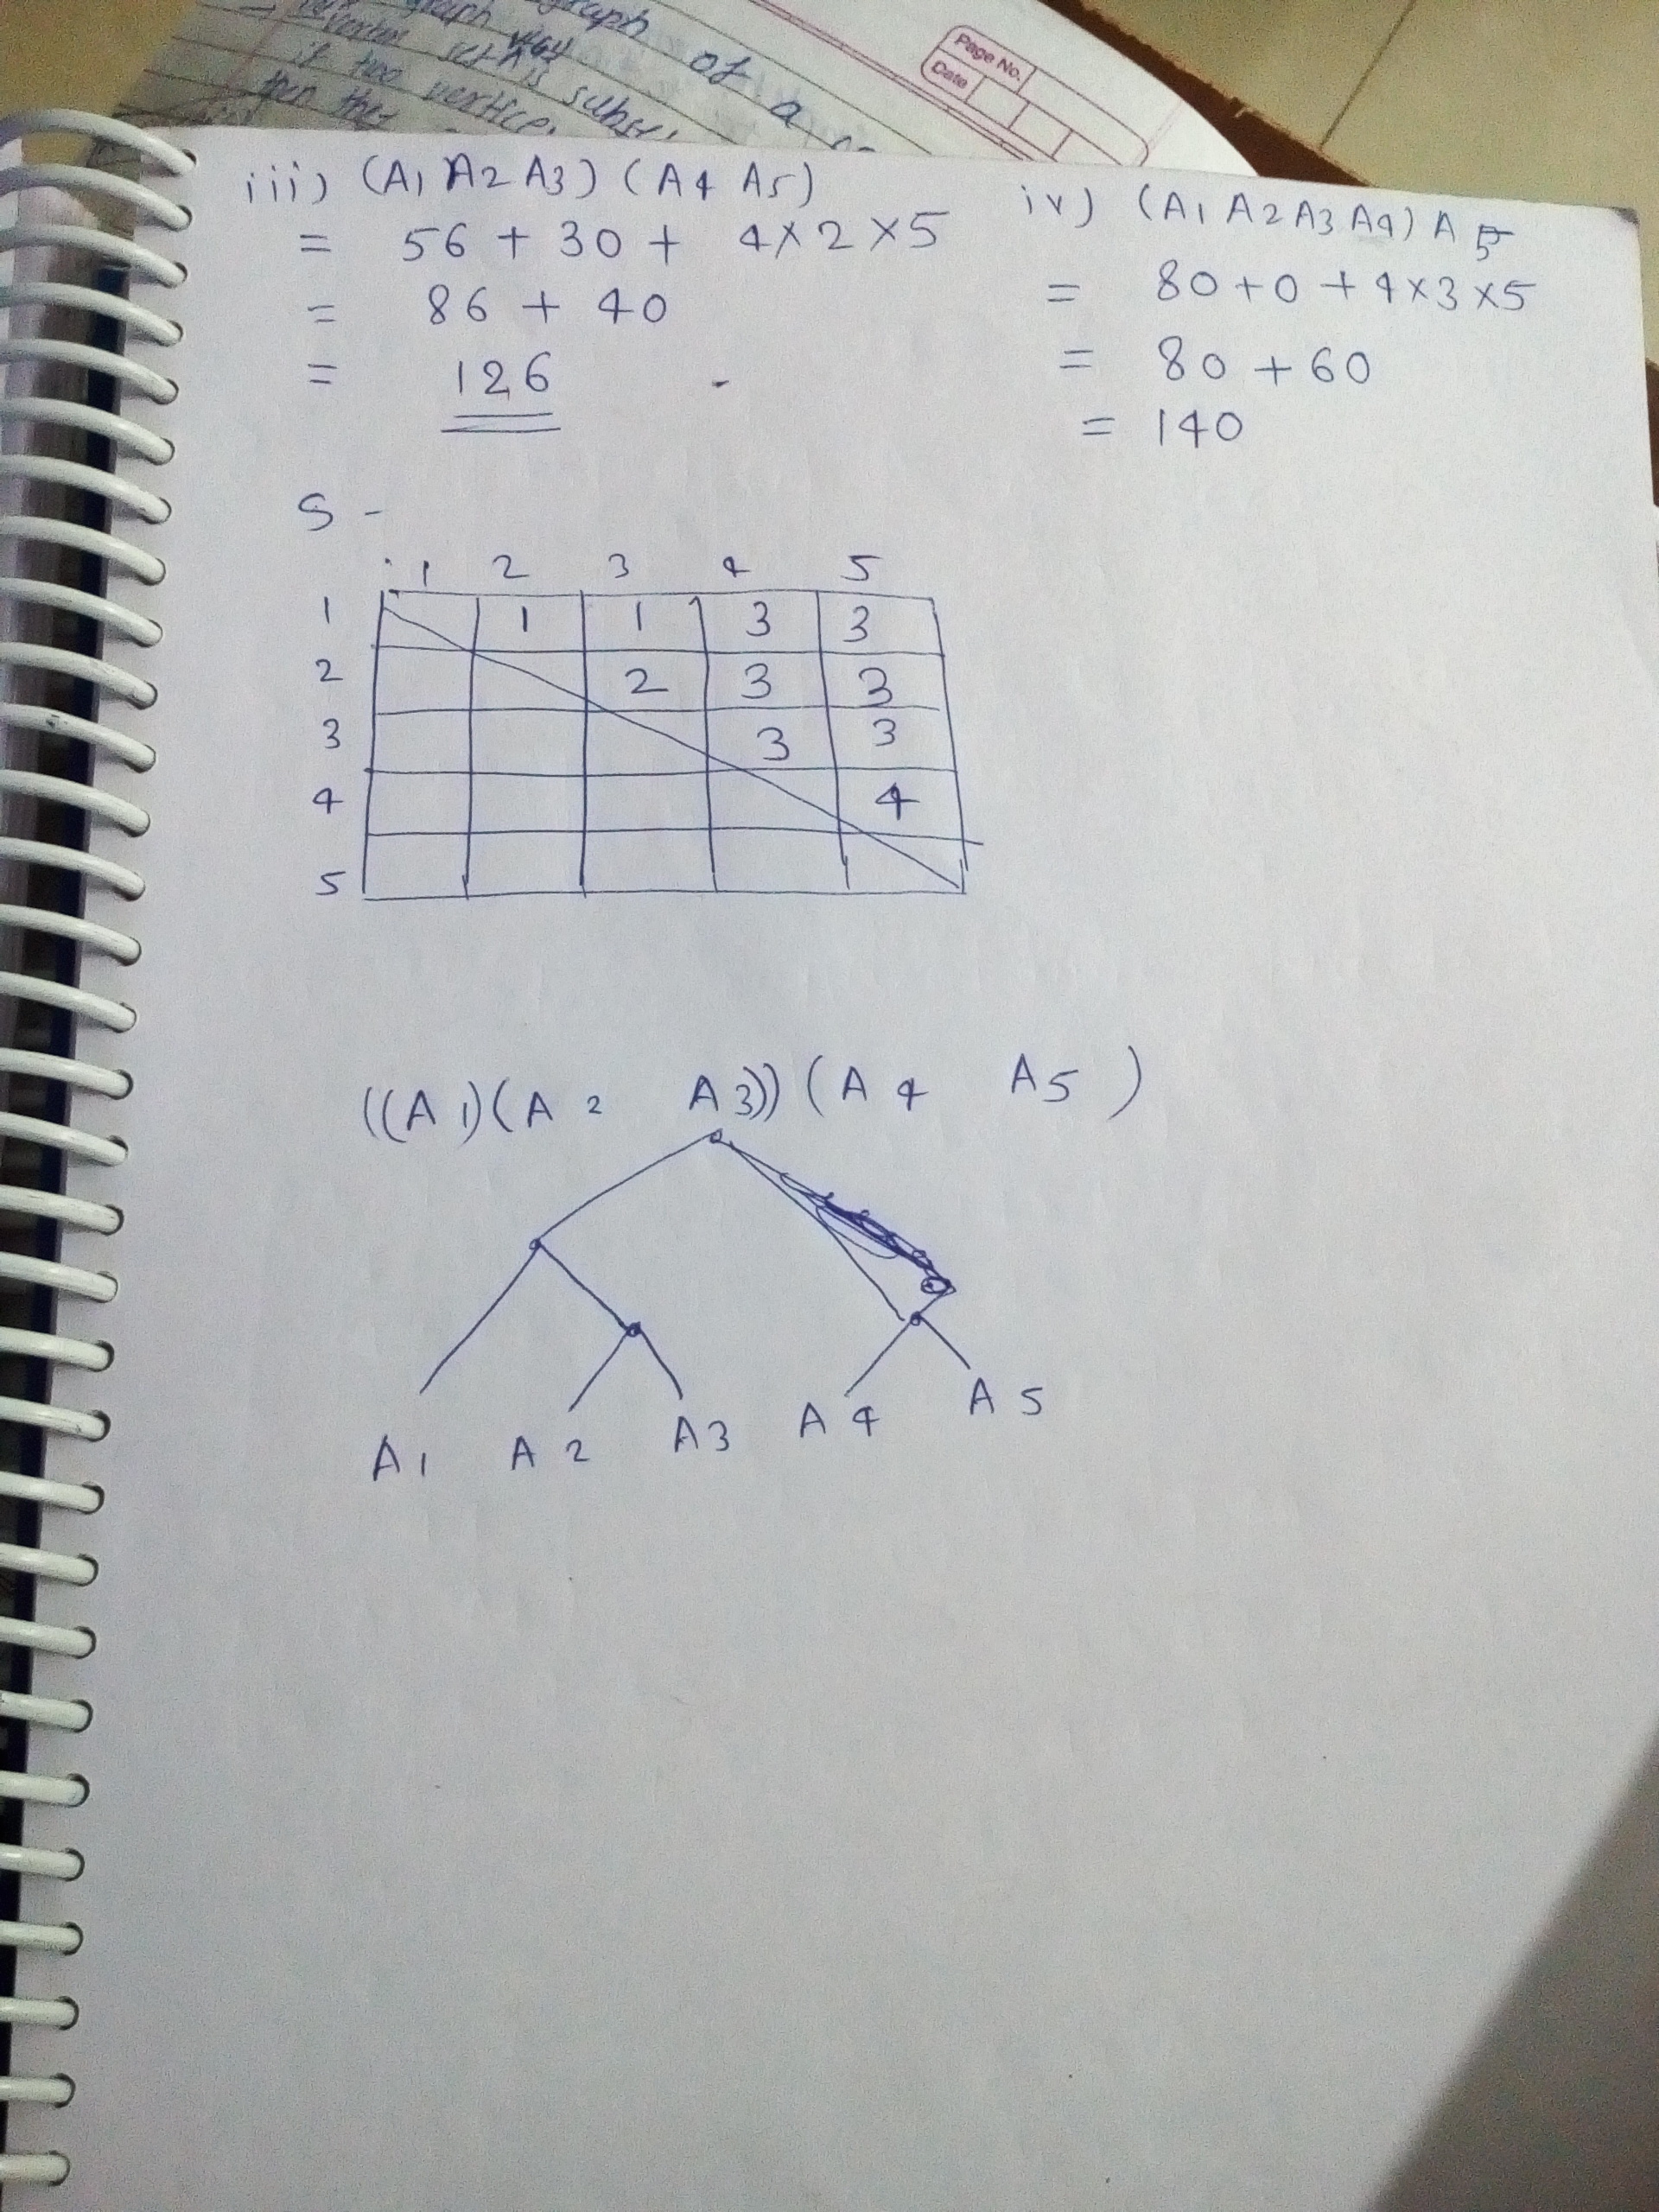 graph of a
vertex set V(G) is subset
if two vertices
then they
Page No.
Date
iii) (A1 A2 A3) (A4 A5)
= 56 + 30 + 4 × 2 × 5
= 86 + 40
= 126
iv) (A1 A2 A3 A4) A5
= 80 + 0 + 4 × 3 × 5
= 80 + 60
= 140
S -
1 2 3 4 5
1 1 1 3 3
2 2 3 3
3 3 3
4 4
5
((A1)(A2 A3))(A4 A5)
A1 A2 A3 A4 A5